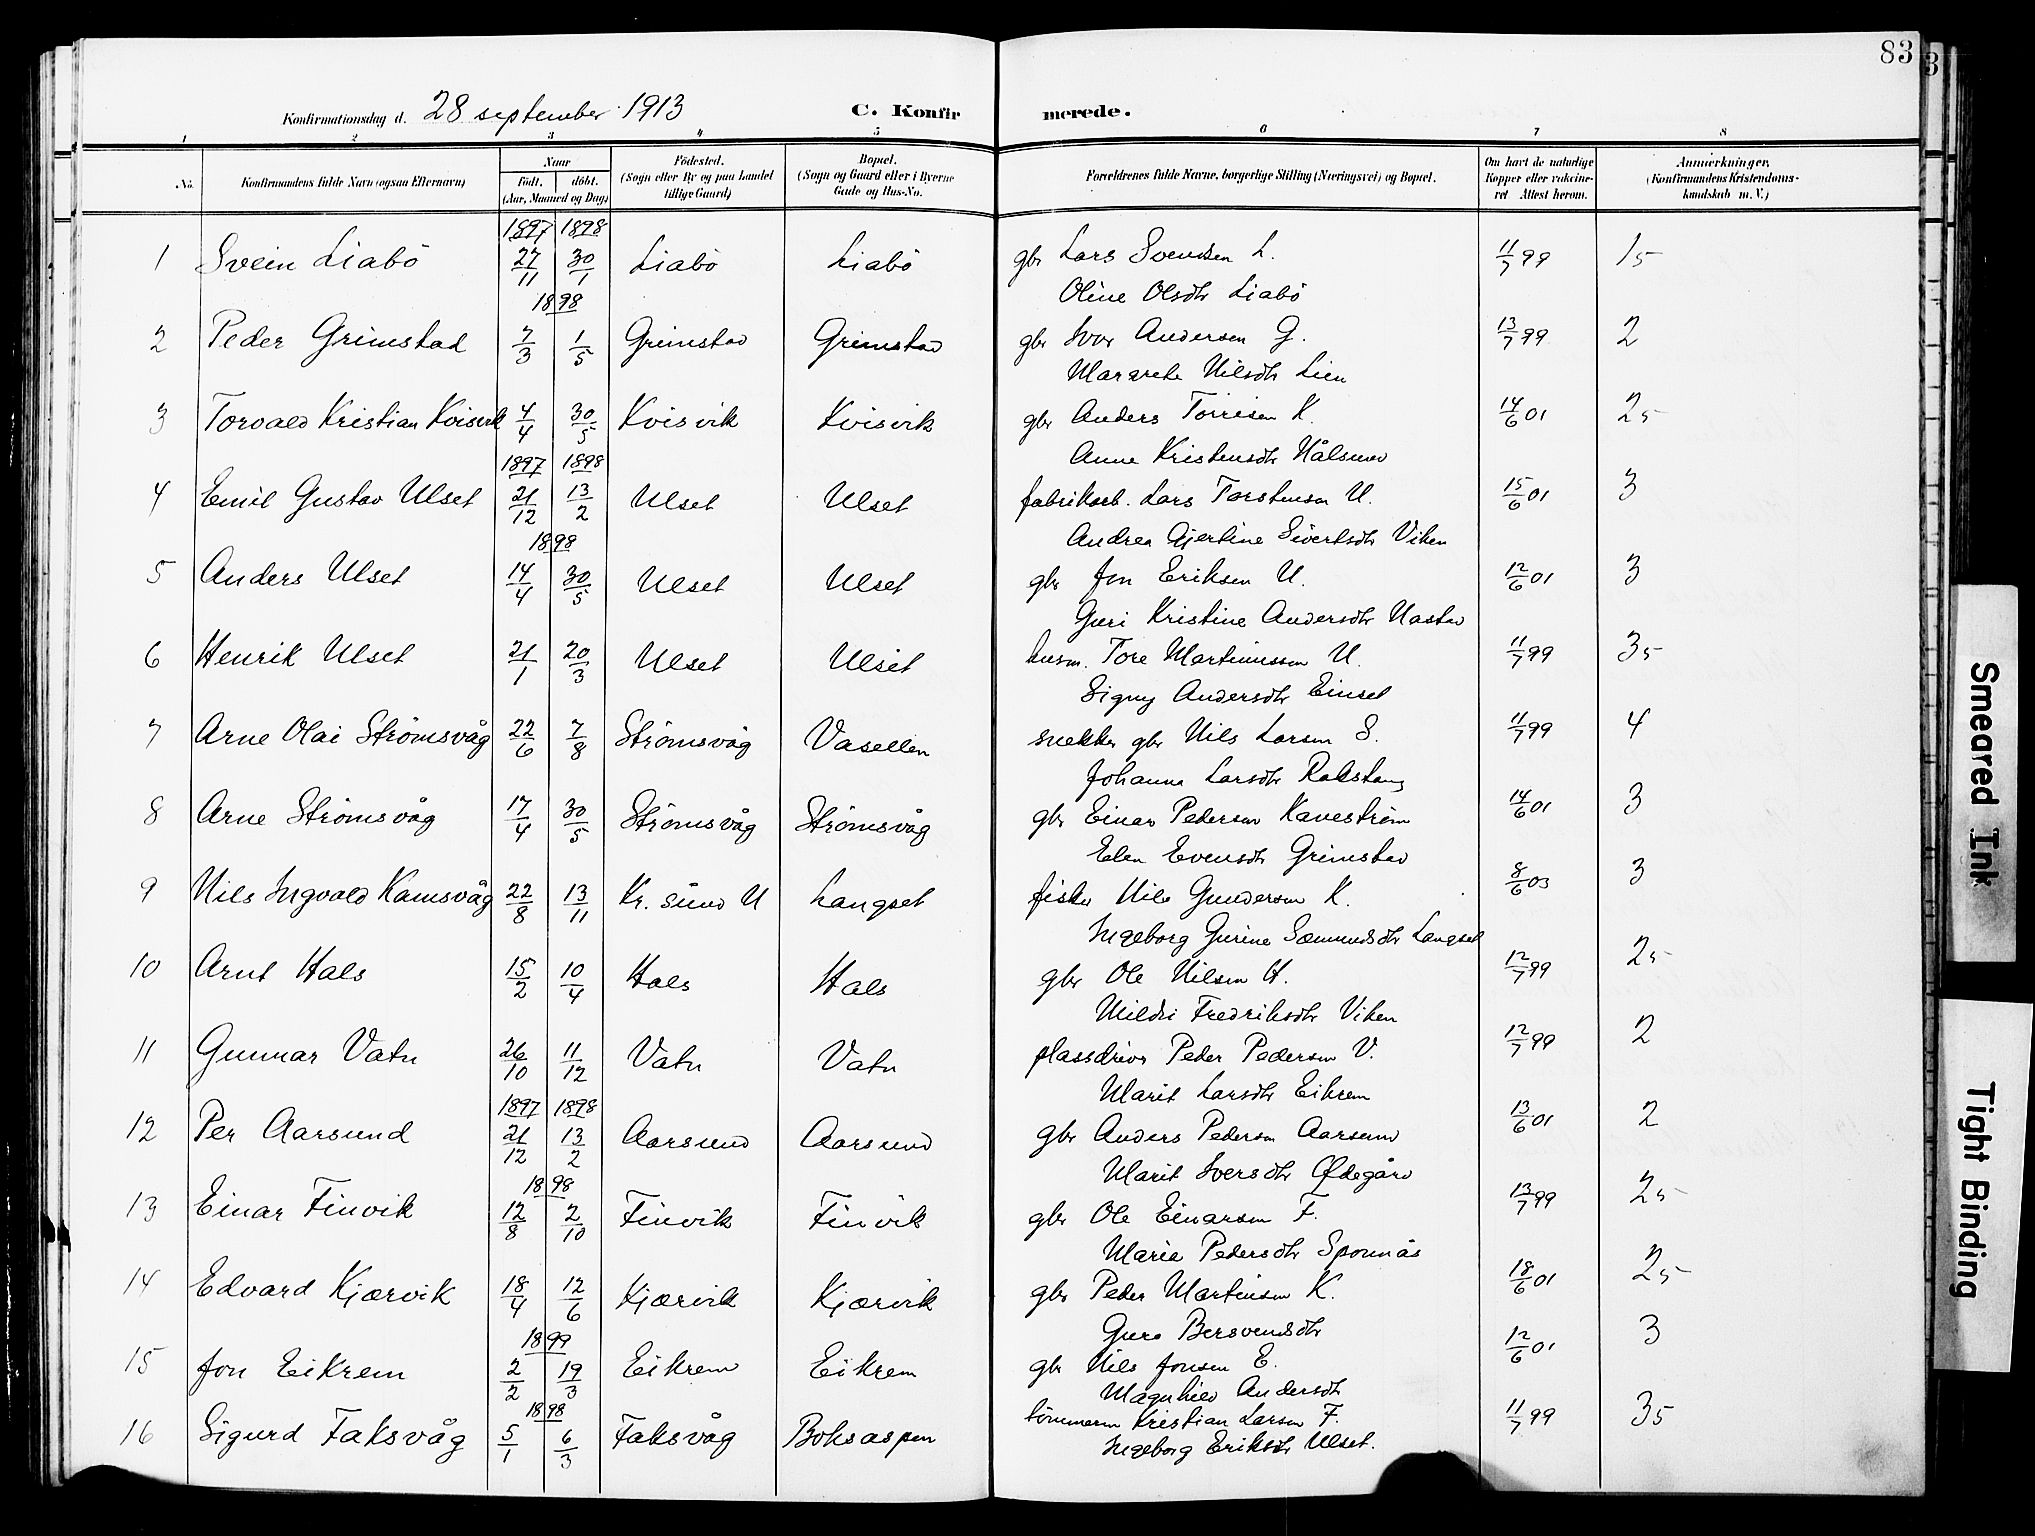 83
Konfirmationsdag d. 28 september 1913 C. Konfirmerede.
1 2 3 4 5 6 7 8
No. Konfirmandens fulde Navn (ogsaa Efternavn) Naar Født. døbt. (Aar, Maaned og Dag) Fødested. (Sogn eller By og paa Landet tillige Gaard) Bopæl. (Sogn og Gaard eller i Byerne Gade og Hus-No. Forældrenes fulde Navne, borgerlige Stilling (Næringsvei) og Bopæl. Om havt de naturlige Kopper eller vaccineret Attest herom. Anmærkninger, (Konfirmandens Kristendomskundskab m. V.)
1897 1898
1 Svein Liabö 27/11 30/1 Liabö Liabö gbr Lars Svendsen L. 11/7 99 15
Oline Olsdtr Liabö
1898
2 Peder Grimstad 7/3 1/5 Grimstad Grimstad gbr Ivar Andersen G. 13/7 99 2
Margrete Nilsdtr Lien
3 Torvald Kristian Kvisvik 4/4 30/5 Kvisvik Kvisvik gbr Anders Torrisen K. 14/6 01 25
Anne Kristensdtr
1897 1898
4 Emil Gustav Ulset 21/12 13/2 Ulset Ulset fabrikarb. Lars Torstensen U. 15/6 01 3
Andrea Gjertine Sivertsdtr Viken
1898
5 Anders Ulset 14/4 30/5 Ulset Ulset gbr Jon Eriksen U. 12/6 01 3
Guri Kristine Andersdtr Nastad
6 Henrik Ulset 21/1 20/3 Ulset Ulset husm. Tore Martinussen U. 11/7 99 35
Signy Andersdtr Einset
7 Arne Olai Strömsvåg 22/6 7/8 Strömsvåg Vasellen snekker gbr Nils Larsen S. 11/7 99 4
Johanna Larsdtr
8 Arne Strömsvåg 17/4 30/5 Strömsvåg Strömsvåg gbr Einar Pedersen Kaneström 14/6 01 3
Elen Evensdtr Grimstad
9 Nils Ingvald Kamsvåg 22/8 13/11 Kr. sund N Langset fisker Nils Gundersen K. 8/6 03 3
Ingeborg Gurine Sæmundsdtr Langset
10 Arnt Hals 15/2 10/4 Hals Hals gbr Ole Nilsen H. 12/7 99 25
Mildri Fredriksdtr Viken
11 Gunnar Vatn 26/10 11/12 Vatn Vatn plassdriver Peder Pedersen V. 12/7 99 2
Marit Larsdtr Eikrem
1897 1898
12 Per Aarsund 21/12 13/2 Aarsund Aarsund gbr Anders Pedersen Aarsund 13/6 01 2
Marit Iversdtr Ødegård
1898
13 Einar Finvik 12/8 2/10 Finvik Finvik gbr Ole Einarsen F. 13/7 99 25
Marie Pedersdtr Sponnås
14 Edvard Kjærvik 18/4 12/6 Kjærvik Kjærvik gbr Peder Martinsen K. 18/6 01 25
Guro Bersvendsdtr
1899
15 Jon Eikrem 2/2 19/3 Eikrem Eikrem gbr Nils Jonsen E. 12/6 01 3
Magnhild Andersdtr
1898
16 Sigurd Faksvåg 5/1 6/3 Faksvåg Boksaspen tömmerm Kristian Larsen F. 11/7 99 35
Ingeborg Eriksdtr Ulset.
Smeared Ink
Tight Binding